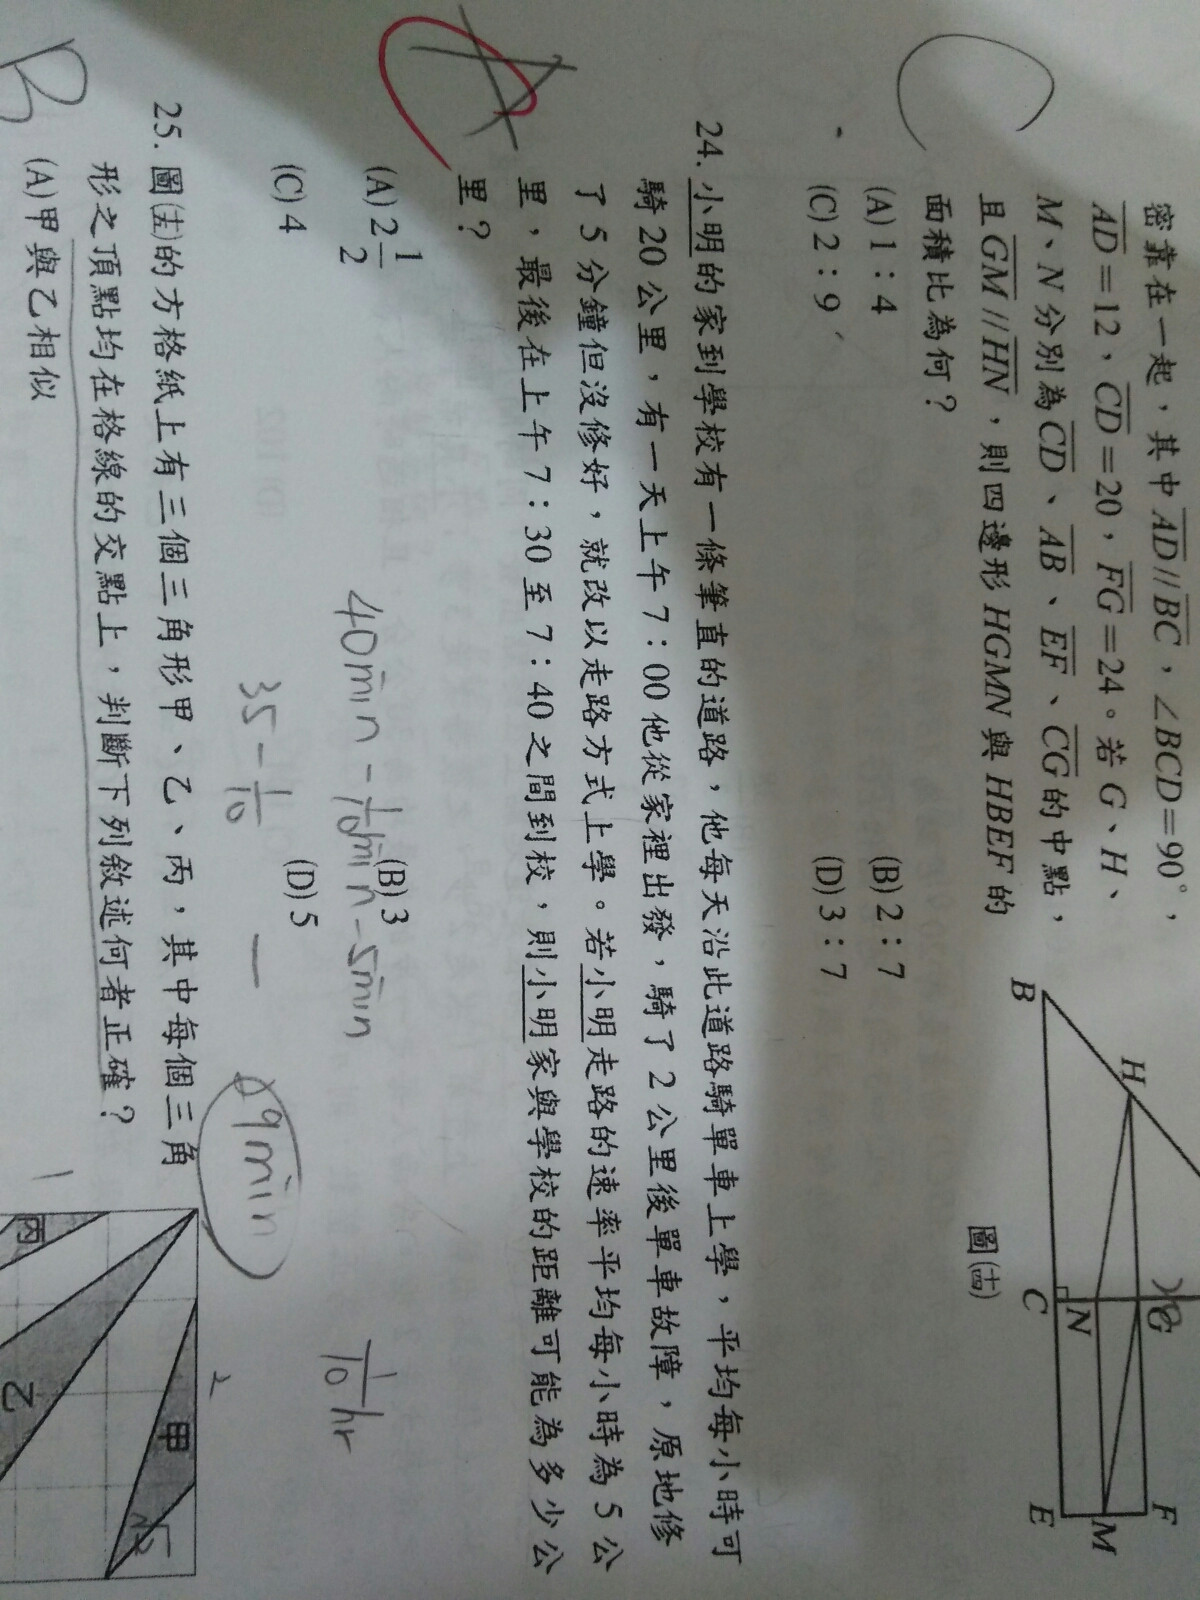 密靠在一起，其中AD//BC，∠BCD=90°，
AD=12、CD=20，FG=24。若G、H、
M、N分別為CD、AB、EF、CG的中點，
且GM//HN，則四邊形HGMN與HBEF的
面積比為何？
(A) 1：4 (B) 2：7
(C) 2：9 (D) 3：7
C
B
H
C
N
G
E
M
F
圖(十四)
24. 小明的家到學校有一條筆直的道路，他每天沿此道路騎單車上學，平均每小時可
騎20公里，有一天上午7：00他從家裡出發，騎了2公里後單車故障，原地修
了5分鐘但沒修好，就改以走路方式上學。若小明走路的速率平均每小時為5公
里，最後在上午7：30至7：40之間到校，則小明家與學校的距離可能為多少公
里？
(A) 2 1/2 (B) 3
(C) 4 (D) 5
A
40min - 1/10 min - 5min
35 - 1/10
29min
1/10 hr
25. 圖(十五)的方格紙上有三個三角形甲、乙、丙，其中每個三角
形之頂點均在格線的交點上，判斷下列敘述何者正確？
(A) 甲與乙相似
B
1
2
甲
乙
丙